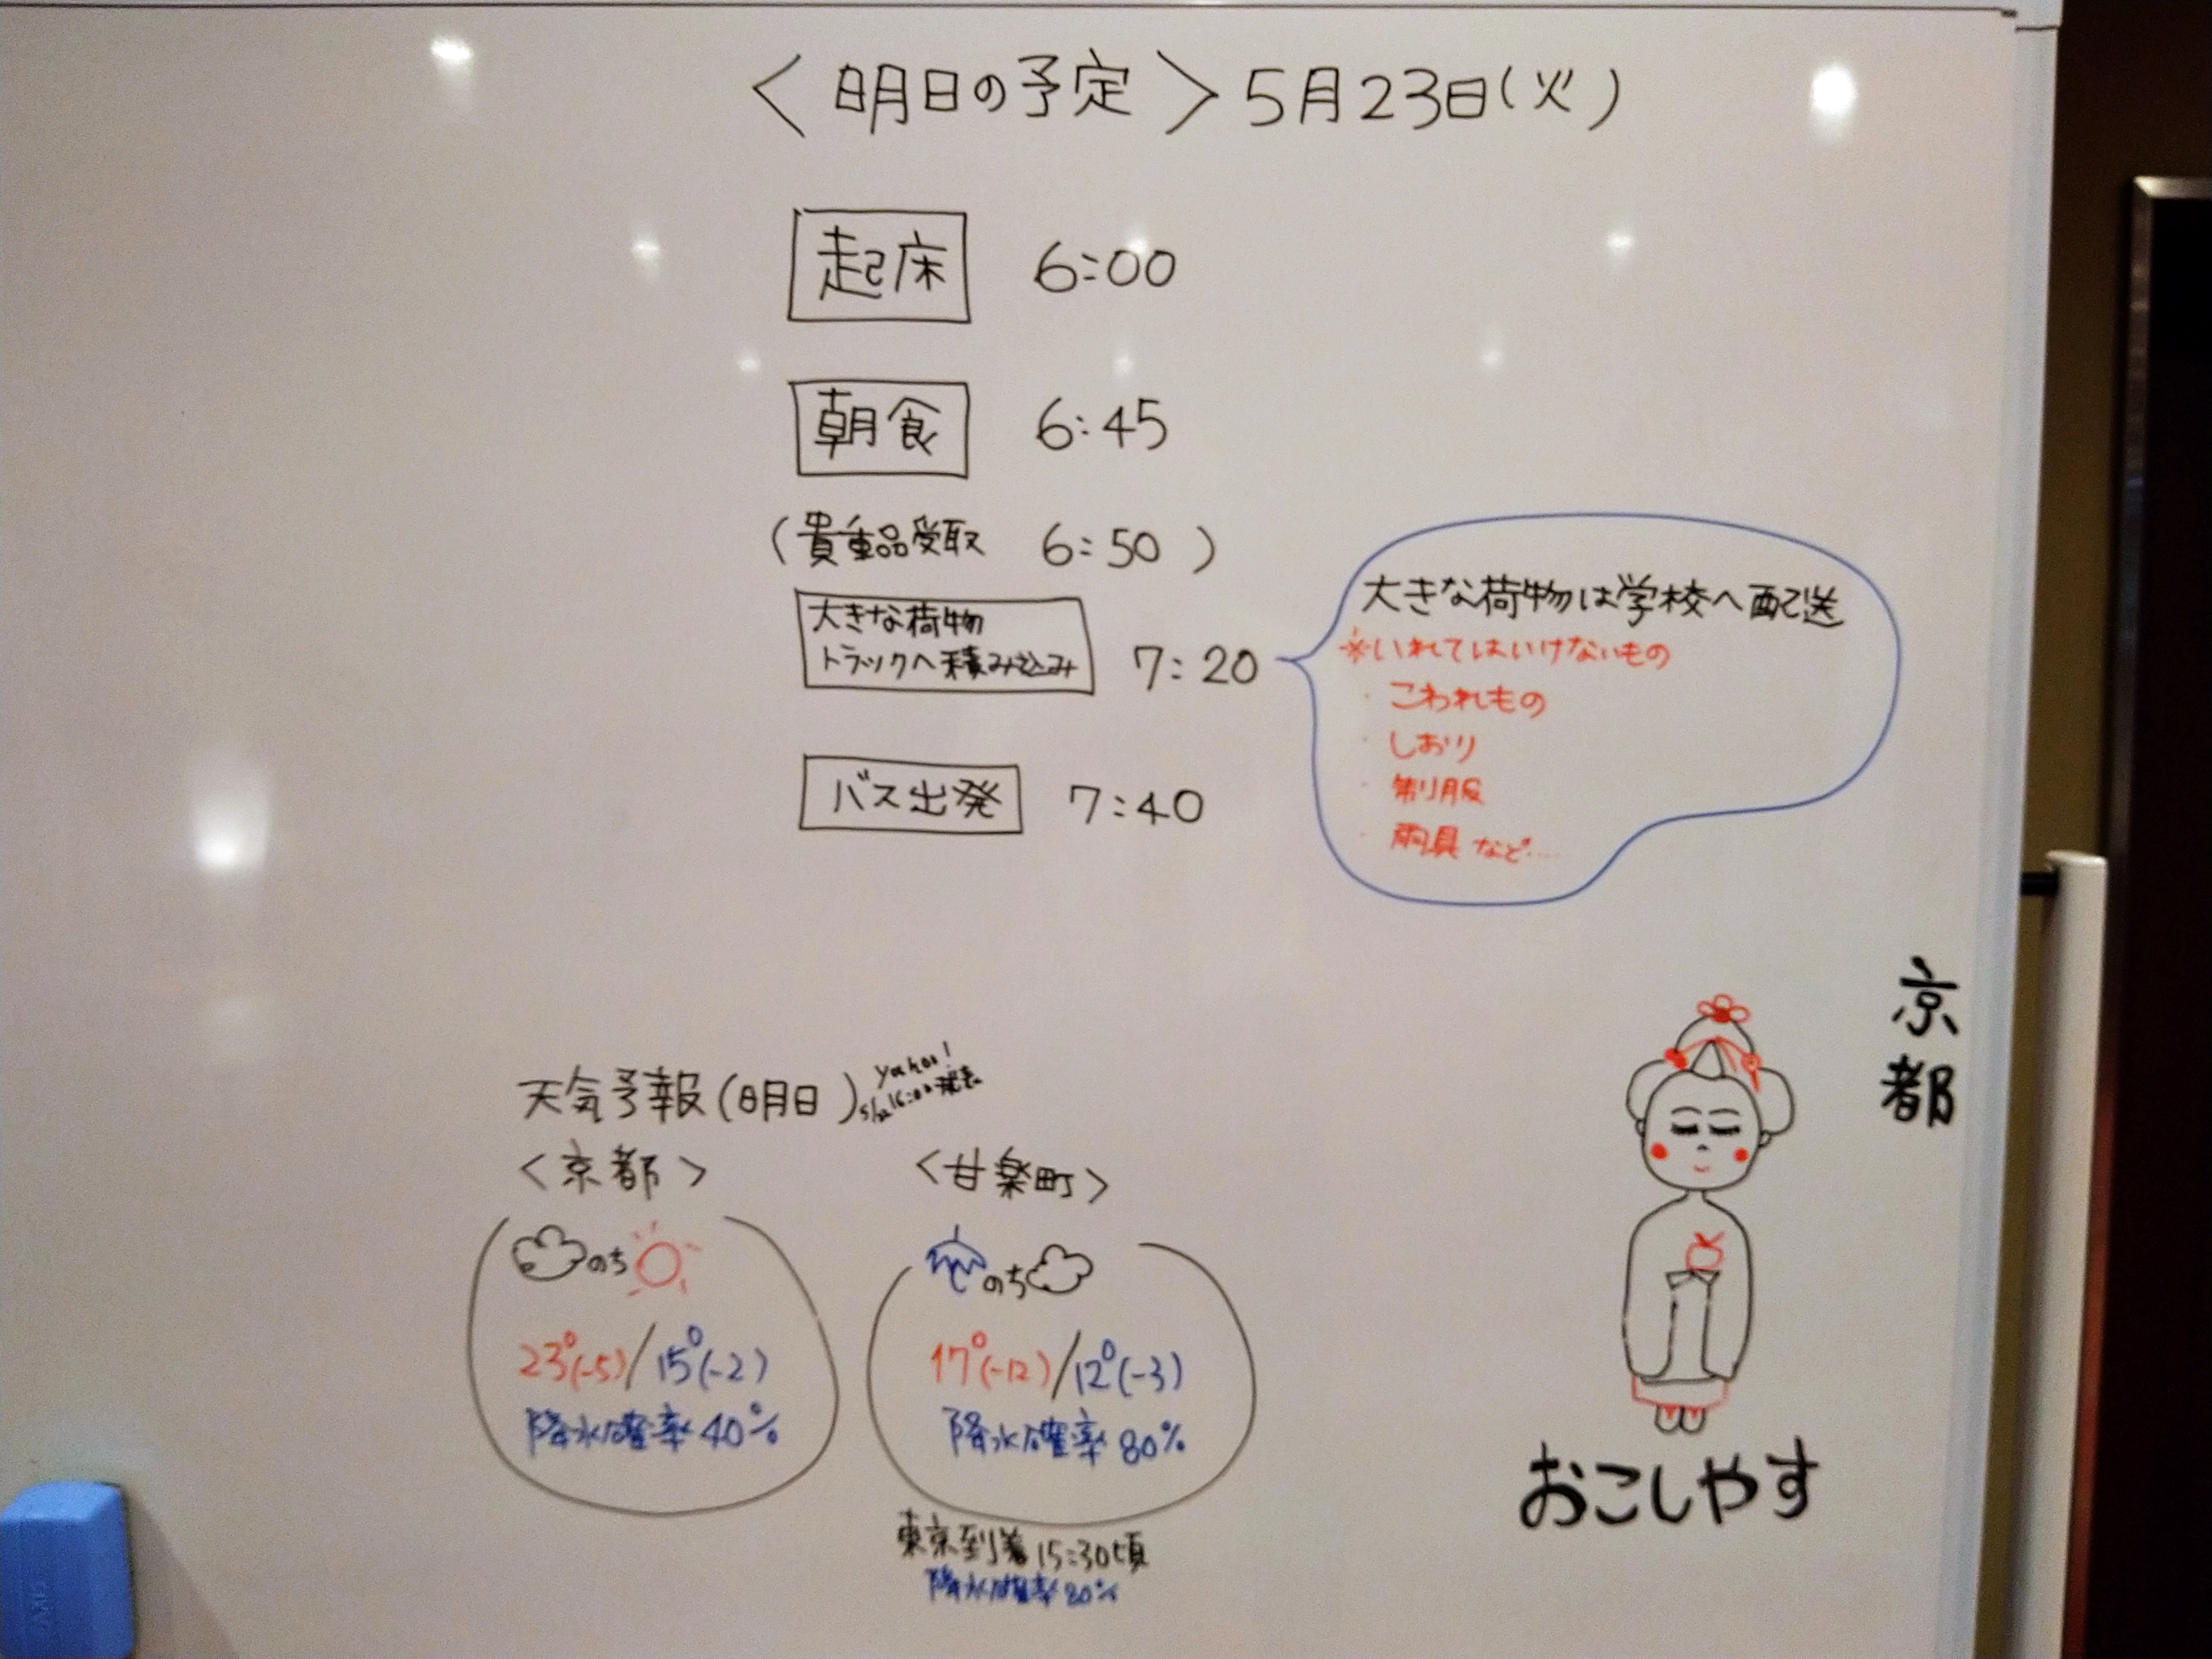 ＜明日の予定＞5月23日(火)
起床 6:00
朝食 6:45
(貴重品受取 6:50)
大きな荷物
トラックへ積み込み 7:20
バス出発 7:40
大きな荷物は学校へ配送
※いれてはいけないもの
・こわれもの
・しおり
・制服
・雨具 など…
京都
おこしやす
天気予報(明日)
yahoo!
5/22 16:00発表
＜京都＞
のち
23°(-5)/15°(-2)
降水確率40%
＜甘楽町＞
のち
17°(-12)/12°(-3)
降水確率80%
東京到着15:30頃
降水確率80%